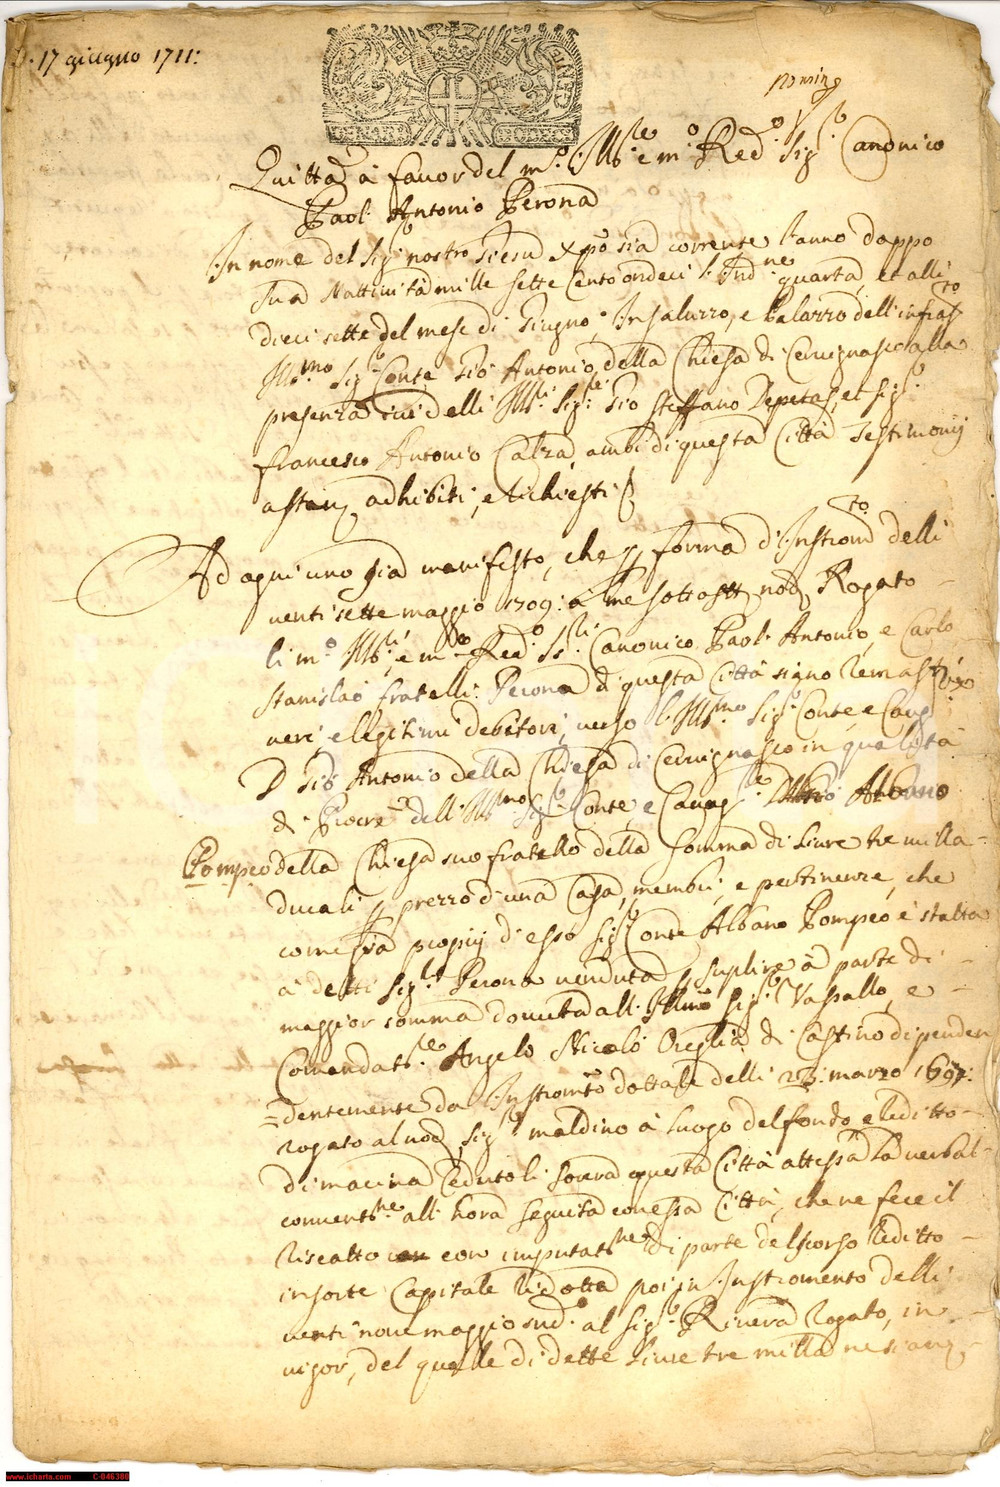 D. 17 giugno 1711:
Quittã à favor del m.o Ill.re e m.o Red.o Sig.r Canonico
Paol. Antonio Perona
In nome del Sig.r nostro Giesu Xpõ sia corrente l'anno doppo
sua Nattività mille sette Cento ondeci l. Ind.ne quarta, et alli
dieci sette del mese di Giugno, In Saluzzo, e Palazzo dell'infras.to
Ill.mo Sig.r Conte Giõ Antonio della Chiesa di Cervignasco alla
presenza ivi delli Ill.ri Sig.ri Gio Steffano Depetas, et Sig.r
Francesco Antonio Calza ambi di questa Città Testimonij
astan adhibiti, e richiesti
Ad ogni uno sia manifesto, che p forma d'Instrom.to delli
venti sette maggio 1709: à me sottostt nod. Rogato
li m.o Ill.ri, e m.o Red.o SS.ri Canonico Paol. Antonio, e Carlo
Stanislao fratelli Perona di questa Città signo remasti
veri, e legitimi debitori, verso l. Ill.mo Sig.r Conte, e Cavag
D Giõ Antonio della Chiesa di Cervignasco in qualità
di Procre dell. Ill.mo Sig.r Conte, e Cavag.re Albano
Pompeo della Chiesa suo fratello della somma di Livre tre milla
ducali p prezzo d'una Casa, membri, e pertinenze, che
come sia proprij d'esso Sig.r Conte Albano Pompeo è statta
a detti Sig.ri Perona venduta p suplire à parte di
maggior somma dovuta all. Illmõ Sig.r Vassallo, e
Comendat.re Angelo Nicolò Oreglia di Castino dipenden
=dentemente da Instromto dottale delli 23: marzo 1697:
rogato al nod. Sig.r Maldino à luogo del fondo, e reditto
di macina cedutoli sovra questa Città attesa la verbal
convent.ne all'hora seguita con essa Città, che ne fece il
riscatto con imputat.ne di parte del scorso reditto
in sorte Capitale ridotta poi in Instromento delli
venti nove maggio sud.o al Sig.r Rivera Rogato, in
vigor, del quelle di dette Livre tre milla ne